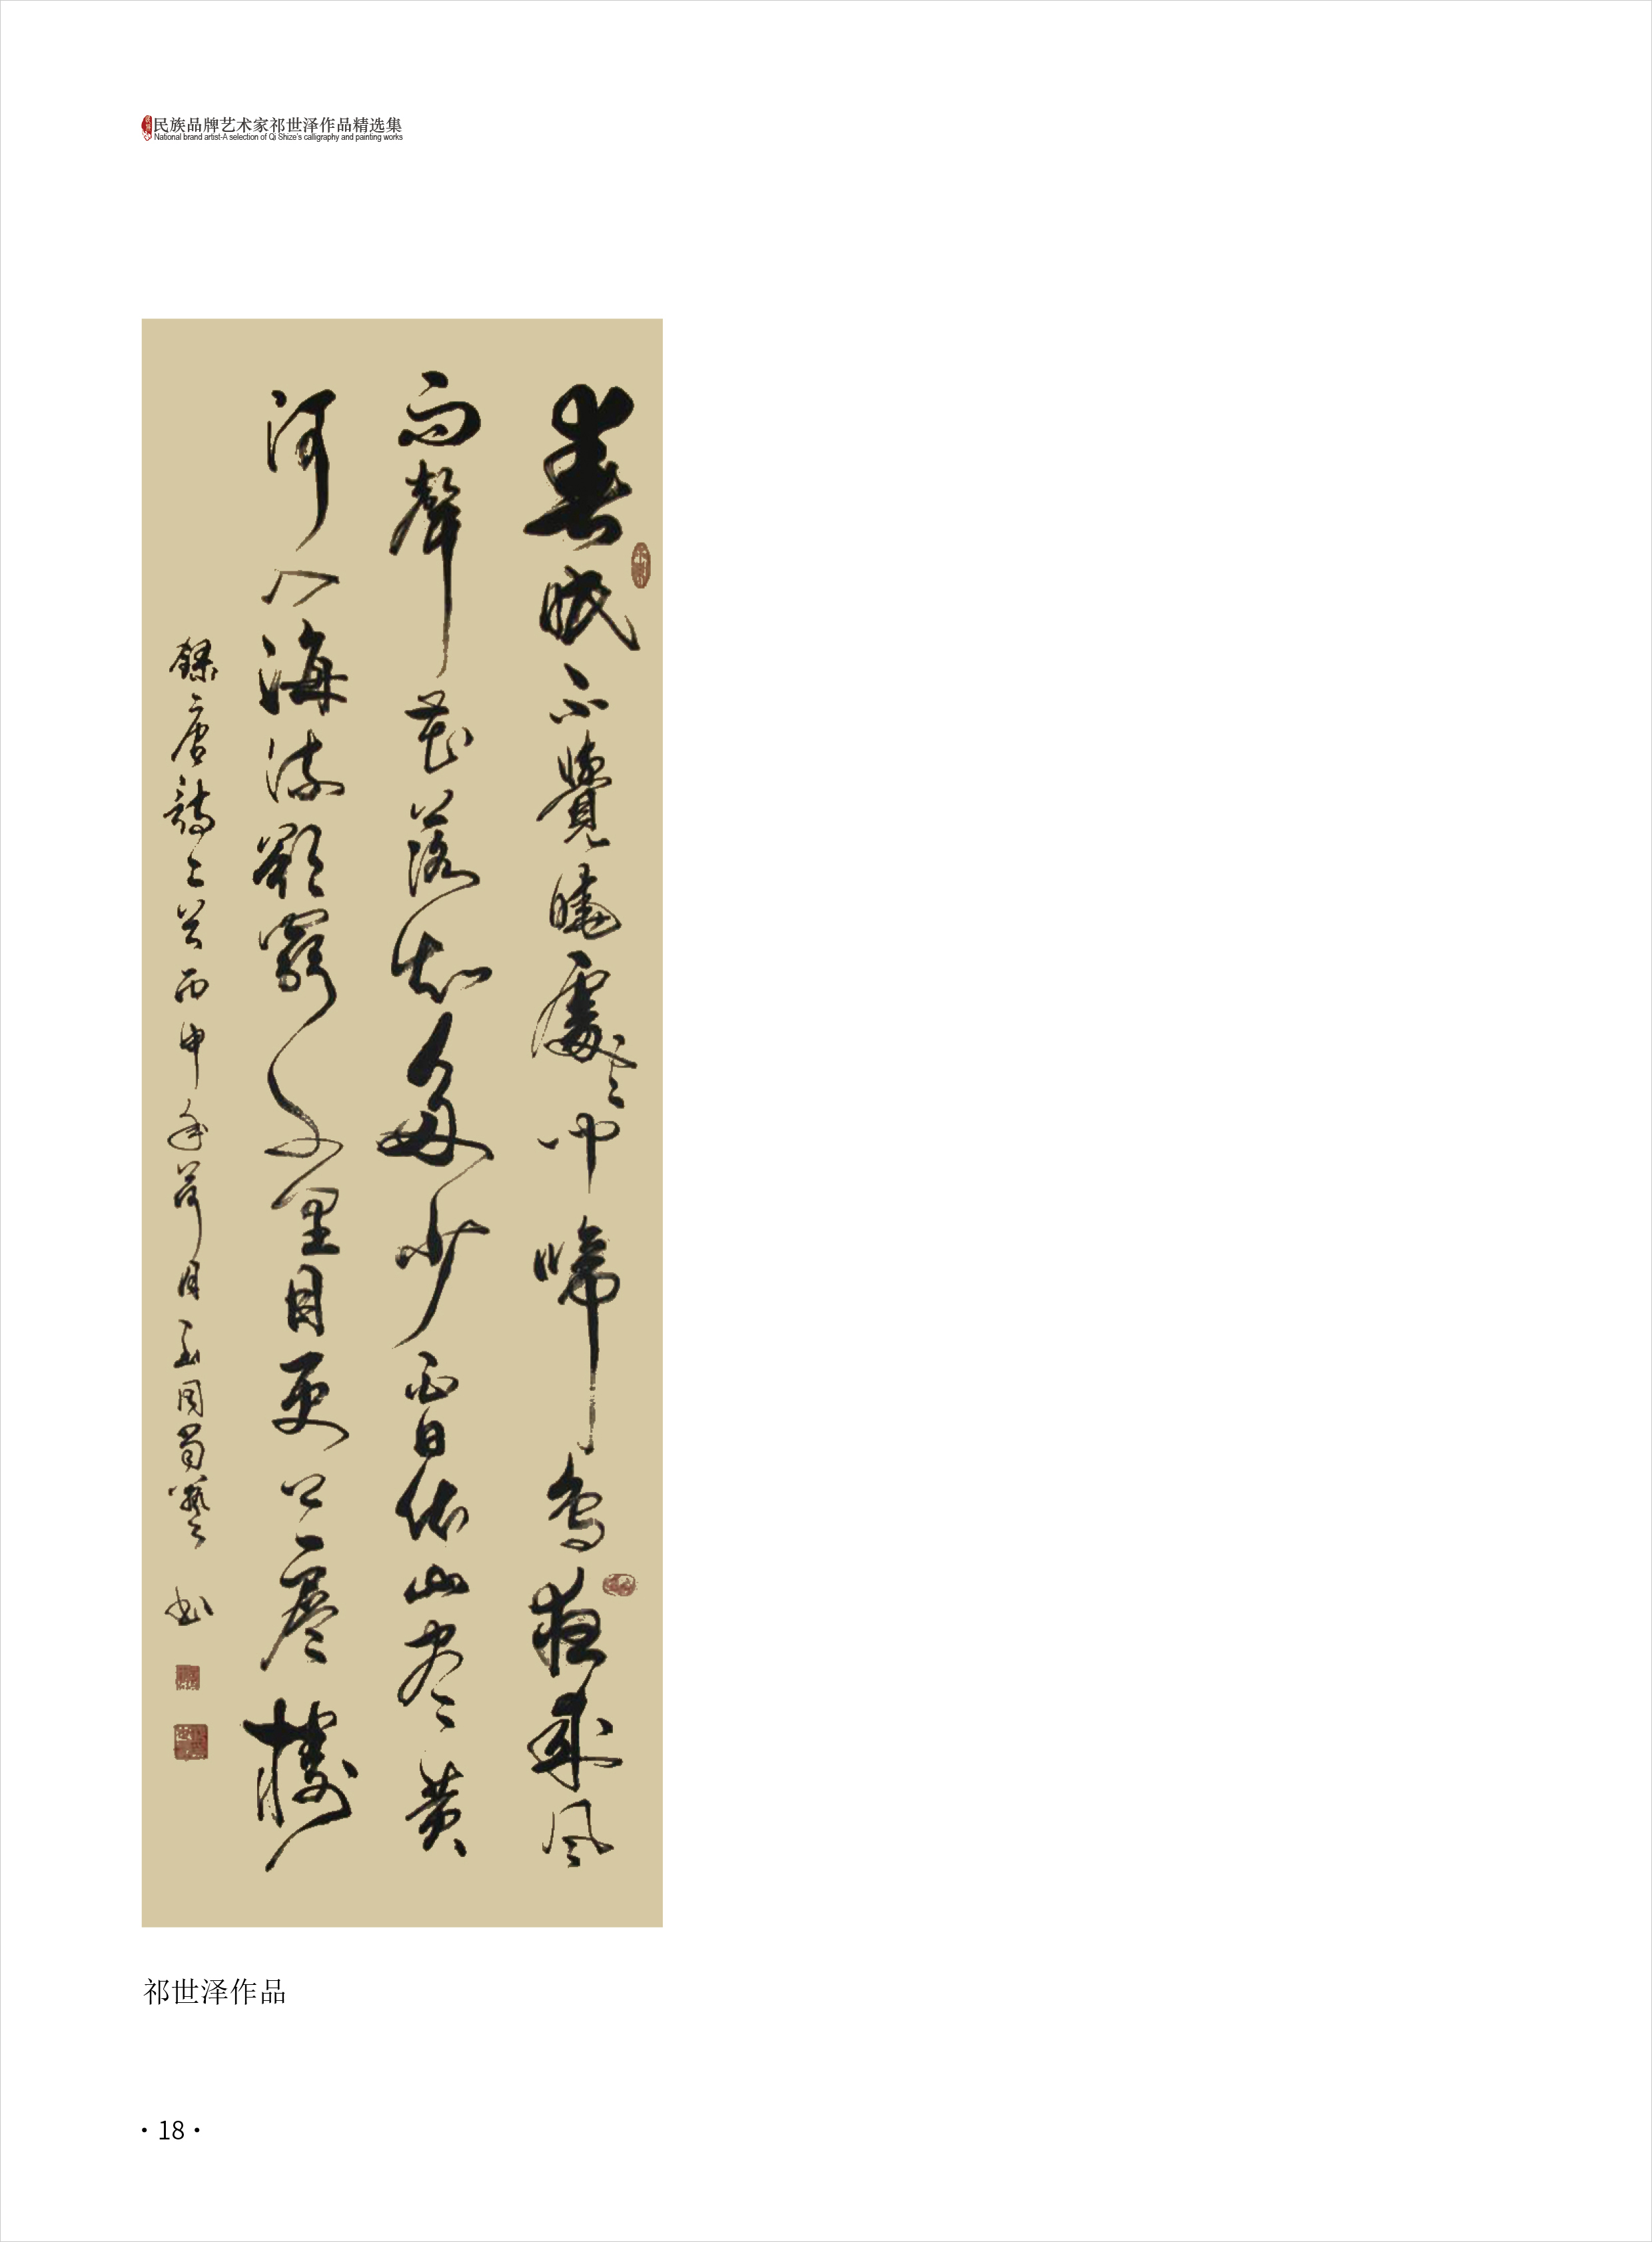 民族品牌艺术家祁世泽作品精选集
National brand artist-A selection of Qi Shize's calligraphy and painting works
春眠不覺曉處々聞啼鳥夜来風
雨聲花落知多少白日依山尽黄
河入海流欲窮千里目更上一層樓
録唐詩二首丙申年荷月書
祁世泽作品
·18·